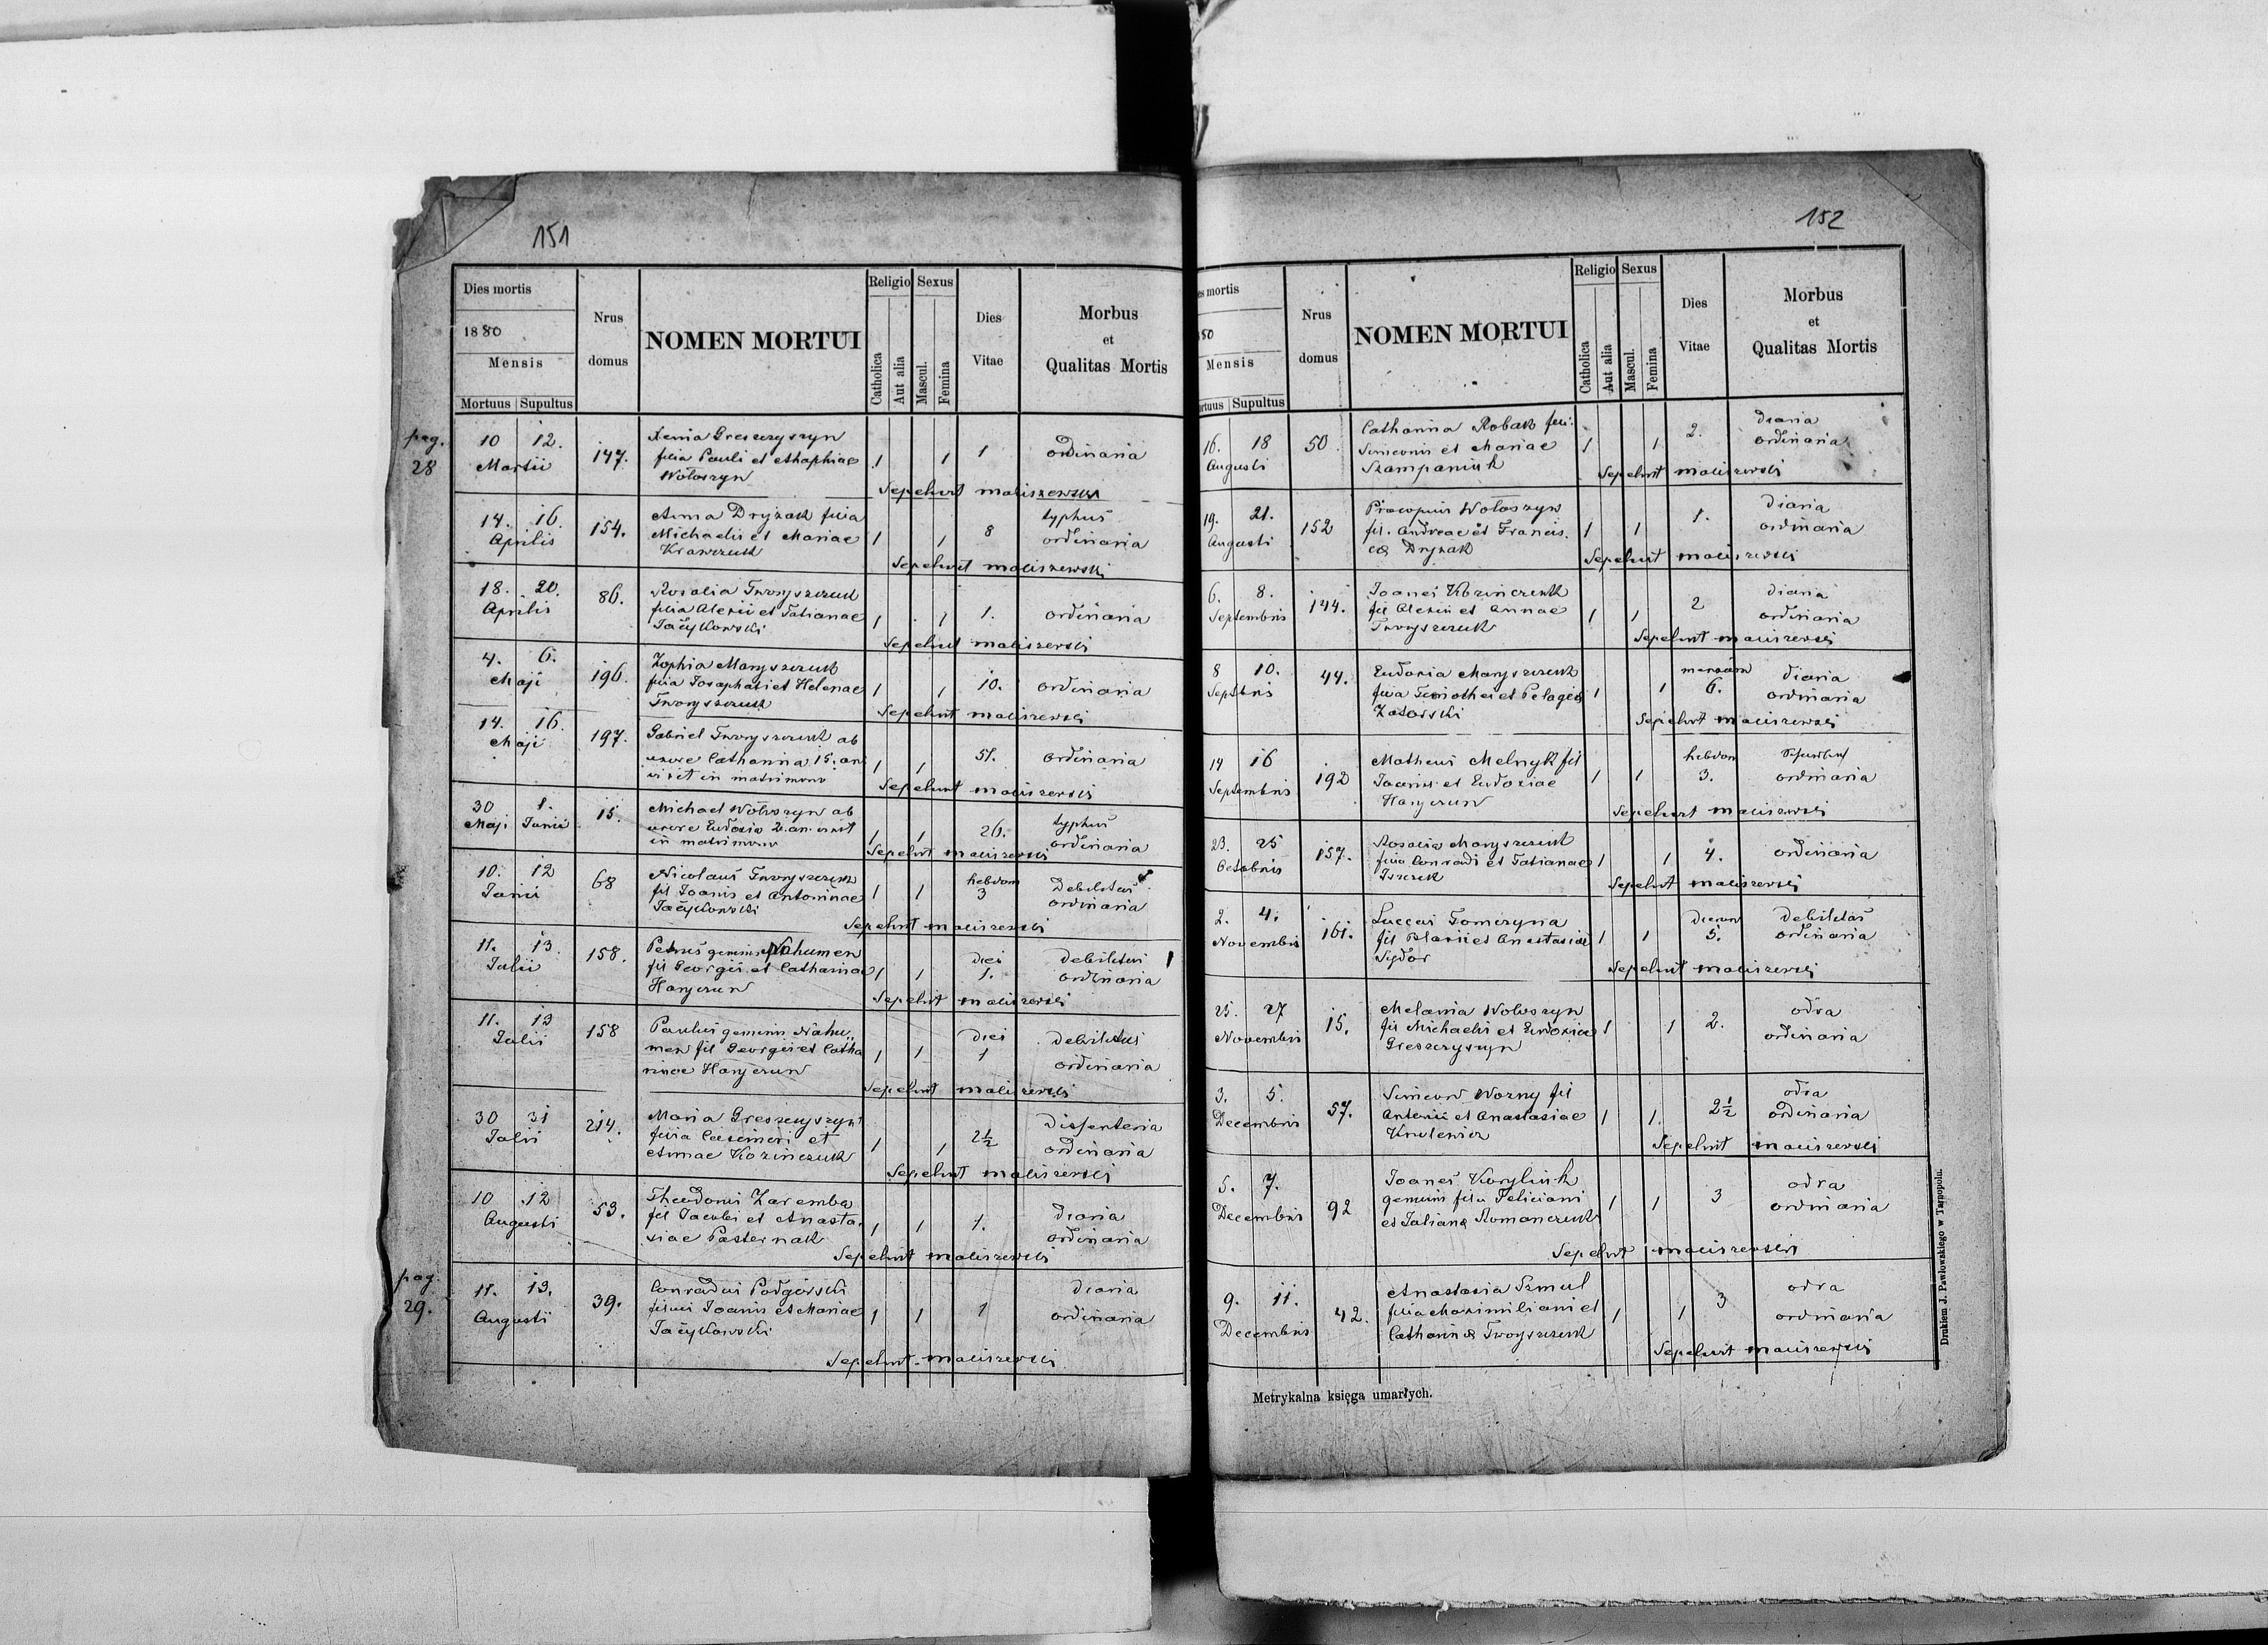 151
Dies mortis
1880
Mensis
Mortuus Supultus
Nrus
domus
NOMEN MORTUI
Religio Sexus
Catholica
Aut alia
Mascul.
Femina
Dies
Vitae
Morbus
et
Qualitas Mortis
pag.
28
10 12.
Martii
147.
Xenia Greszczyszyn
filia Pauli et Ahaphiae
Wołoszyn
1 1 1 ordinaria
Sepelivit Maliszewski
14. 16.
Aprilis
154.
Anna Dryzak filia
Michaelis et Mariae
Krawczuk
1 1 8
typhus
ordinaria
Sepelivit Maliszewski
18. 20.
Aprilis
86.
Rosalia Tworyszczuk
filia Alexii et Tatianae
1 1 1. ordinaria
Sepelivit Maliszewski
4. 6.
Maji
196.
Zophia Maryszczuk
filia Josaphati et Helenae
Tworyszczuk
1 1 10. ordinaria
Sepelivit Maliszewski
14. 16.
Maji
197.
Gabriel Tworyszczuk ab
uxore Catharina 15. an
vixit in matrimonio
1 1 51. ordinaria
Sepelivit Maliszewski
30 1.
Maji Junii
15.
Michael Wołoszyn ab
uxore Eudoxia 2. an. vixit
in matrimonio
1 1 26.
typhus
ordinaria
Sepelivit Maliszewski
10. 12
Junii
68
Nicolaus Tworyszczuk
fil Joanis et Antoninae
1 1
hebdom
3
Debilitas
ordinaria
Sepelivit Maliszewski
11. 13.
Julii
158.
Petrus geminus Nahumen
fil Georgii et Catharinae
Harjczun
1 1
diei
1.
debilitas
ordinaria
Sepelivit Maliszewski
11. 13
Julii
158
Paulus geminus Nahu„
men fil Georgii et Catha
rinae Harjczun
1 1
diei
1
debilitas
ordinaria
Sepelivit Maliszewski
30 31
Julii
214.
Maria Greszczyszyn
filia Casimiri et
Annae Kozinczuk
1 1 2½
dissenteria
ordinaria
Sepelivit Maliszewski
10 12
Augusti
53.
Theodorus Zaremba
fil Jacobi et Anasta.
siae Pasternak
1 1 1.
diaria
ordinaria
Sepelivit Maliszewski
pag.
29.
11. 13.
Augusti
39.
Conradus Podgórski
filius Joanis et Mariae
1 1 1
diaria
ordinaria
Sepelivit Maliszewski
152
es mortis
80
Mensis
rtuus Supultus
Nrus
domus
NOMEN MORTUI
Religio Sexus
Catholica
Aut alia
Mascul.
Femina
Dies
Vitae
Morbus
et
Qualitas Mortis
16. 18
Augusti
50
Catharina Robak fili.
Simeonis et Mariae
Szampaniuk
1 1 2.
diaria
ordinaria
Sepelivit Maliszewski
19. 21.
Augusti
152
Procopius Wołoszyn
fil. Andreae et Francis.
cae Dryzak
1 1 1.
diaria
ordinaria
Sepelivit Maliszewski
6. 8.
Septembris
144.
Joanes Kozinczuk
fil Alexii et Annae
Tworyszczuk
1 1 2
diaria
ordinaria
Sepelivit Maliszewski
8 10.
Septbris
44.
Eudoxia Maryszczuk
filia Timothei et Pelagiae
Zatorski
1 1
mensium
6.
diaria
ordinaria
Sepelivit Maliszewski
14 16
Septembris
192
Matheus Melnyk fil
Joanis et Eudoxiae
Harjczun
1 1
hebdom
3.
ordinaria
Sepelivit Maliszewski
23. 25
Octobris
157.
Rosalia Maryszczuk
filia Conradi et Tatianae
1 1 4. ordinaria
Sepelivit Maliszewski
2. 4.
Novembris
161.
Luccas Tomczyna
fil et Anastasiae
Sydor
1 1
dierum
5.
debilitas
ordinaria
Sepelivit Maliszewski
25. 27
Novembris
15.
Melania Wołoszyn
fil Michaelis et Eudoxiae
Greszczyszyn
1 1 2.
odra
ordinaria
3. 5.
Decembris
57.
Simeon Wozny fil
Antonii et Anastasiae
Krulewicz
1 1. 2½
odra
ordinaria
Sepelivit Maliszewski
5. 7.
Decembris
92
Joanes Koryluk
geminus filius Feliciani
et Julianae Romanczuk
1 1 3
odra
ordinaria
Sepelivit Maliszewski
9. 11.
Decembris
42.
Anastasia Szmul
filia Maximiliani et
Catharinae Tworyszczuk
1 1 3
odra
ordinaria
Sepelivit Maliszewski
Metrykalna księga umarłych.
Drukiem J. Pawłowskiego w Tarnopolu.